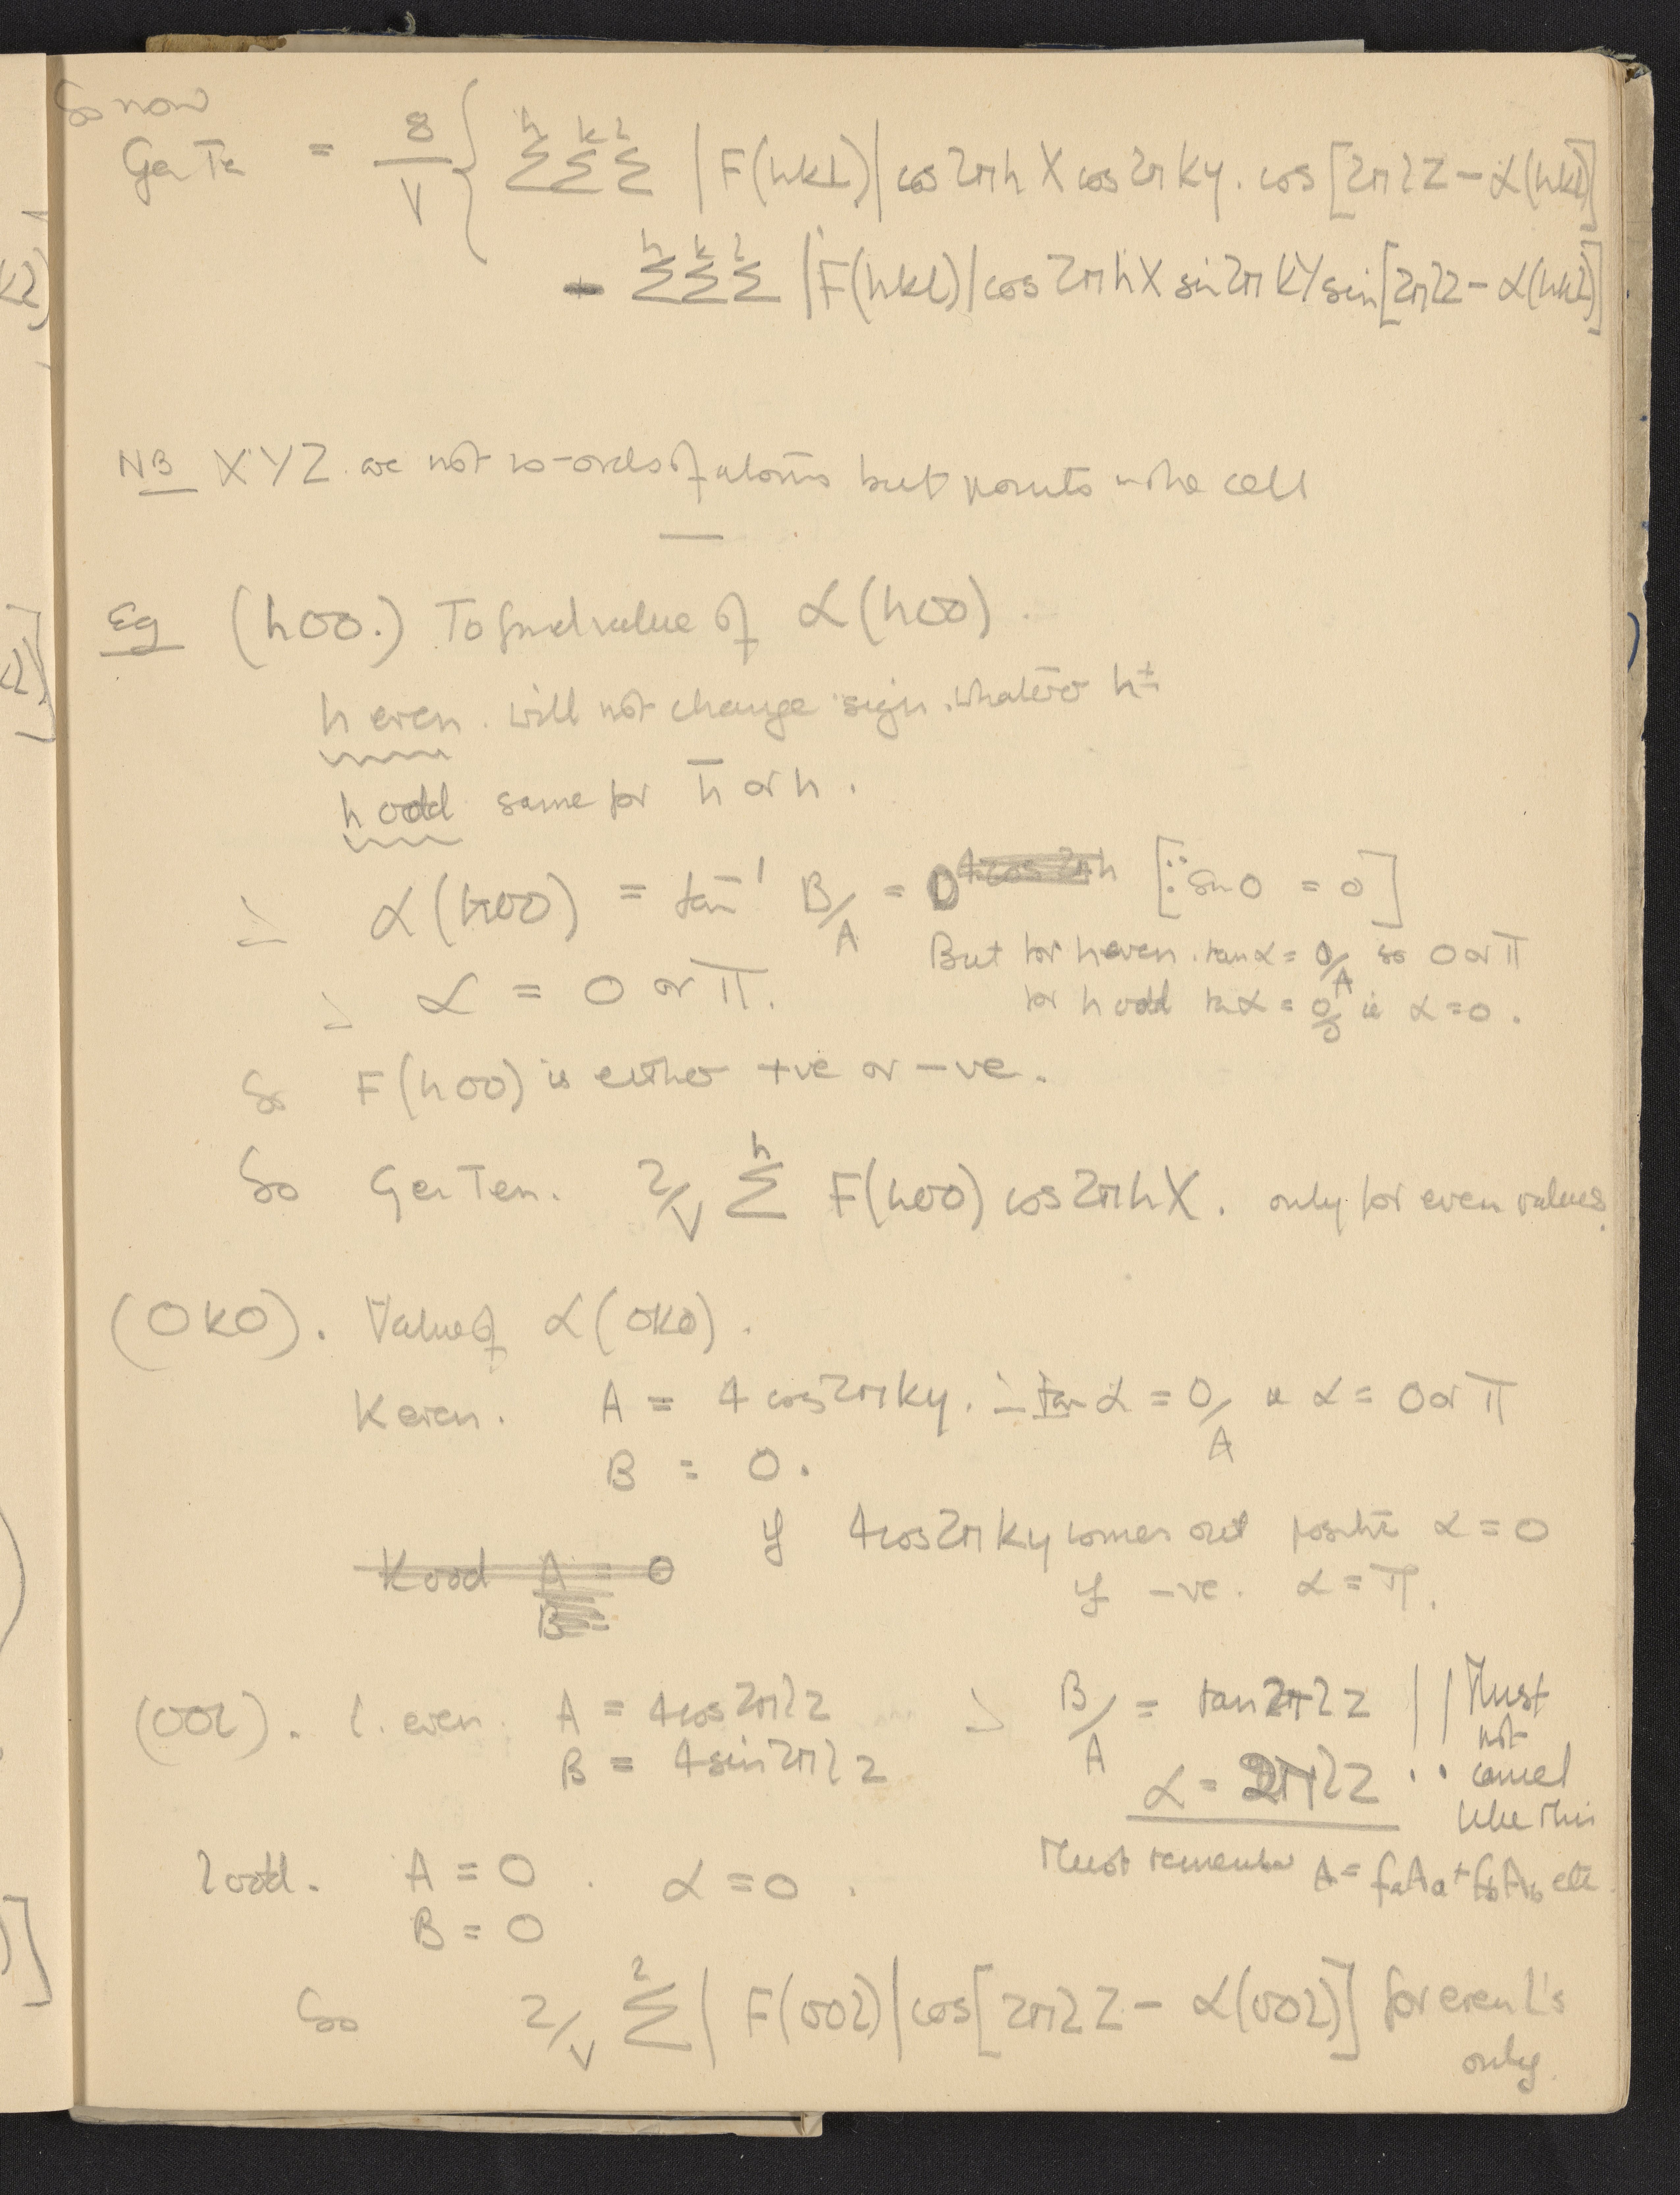 So now
Gen Te = 8/V { Σ^h Σ^k Σ^l |F(hkl)| cos 2πhX cos 2πky . cos [2πlZ - α(hkl)]
- Σ^h Σ^k Σ^l |F(hkl)| cos 2πhX sin 2πkY sin [2πlZ - α(hkl)]
NB XYZ are not co-ords of atoms but points in the cell
Eg (h00.) To find value of α(h00)
h even. will not change sign. whatever h±
h odd same for h̄ or h.
∴ α(h00) = tan⁻¹ B/A = 0 4cos2πh [∵ sin 0 = 0]
But for h even. tan α = 0/A so 0 or π
∴ α = 0 or π.
for h odd tan α = 0/0 ie α = 0.
So F(h00) is either +ve or -ve.
So Gen Term. 2/V Σ^h F(h00) cos 2πhX. only for even values.
(0k0). Value of α(0k0).
K even. A = 4 cos 2πky. ∴ tan α = 0/A ie α = 0 or π
B = 0.
if 4cos2πky comes out positive α = 0
K odd A = 0
if -ve. α = π.
B =
(00l). l. even. A = 4cos2πlz ∴ B/A = tan 2πlz || Must not cancel like this
B = 4sin2πlz
α = 2πlz
Must remember A = faAa + fbAb etc.
l odd. A = 0 . α = 0.
B = 0
So 2/V Σ^l |F(00l)| cos[2πlZ - α(00l)] for even l's
only.